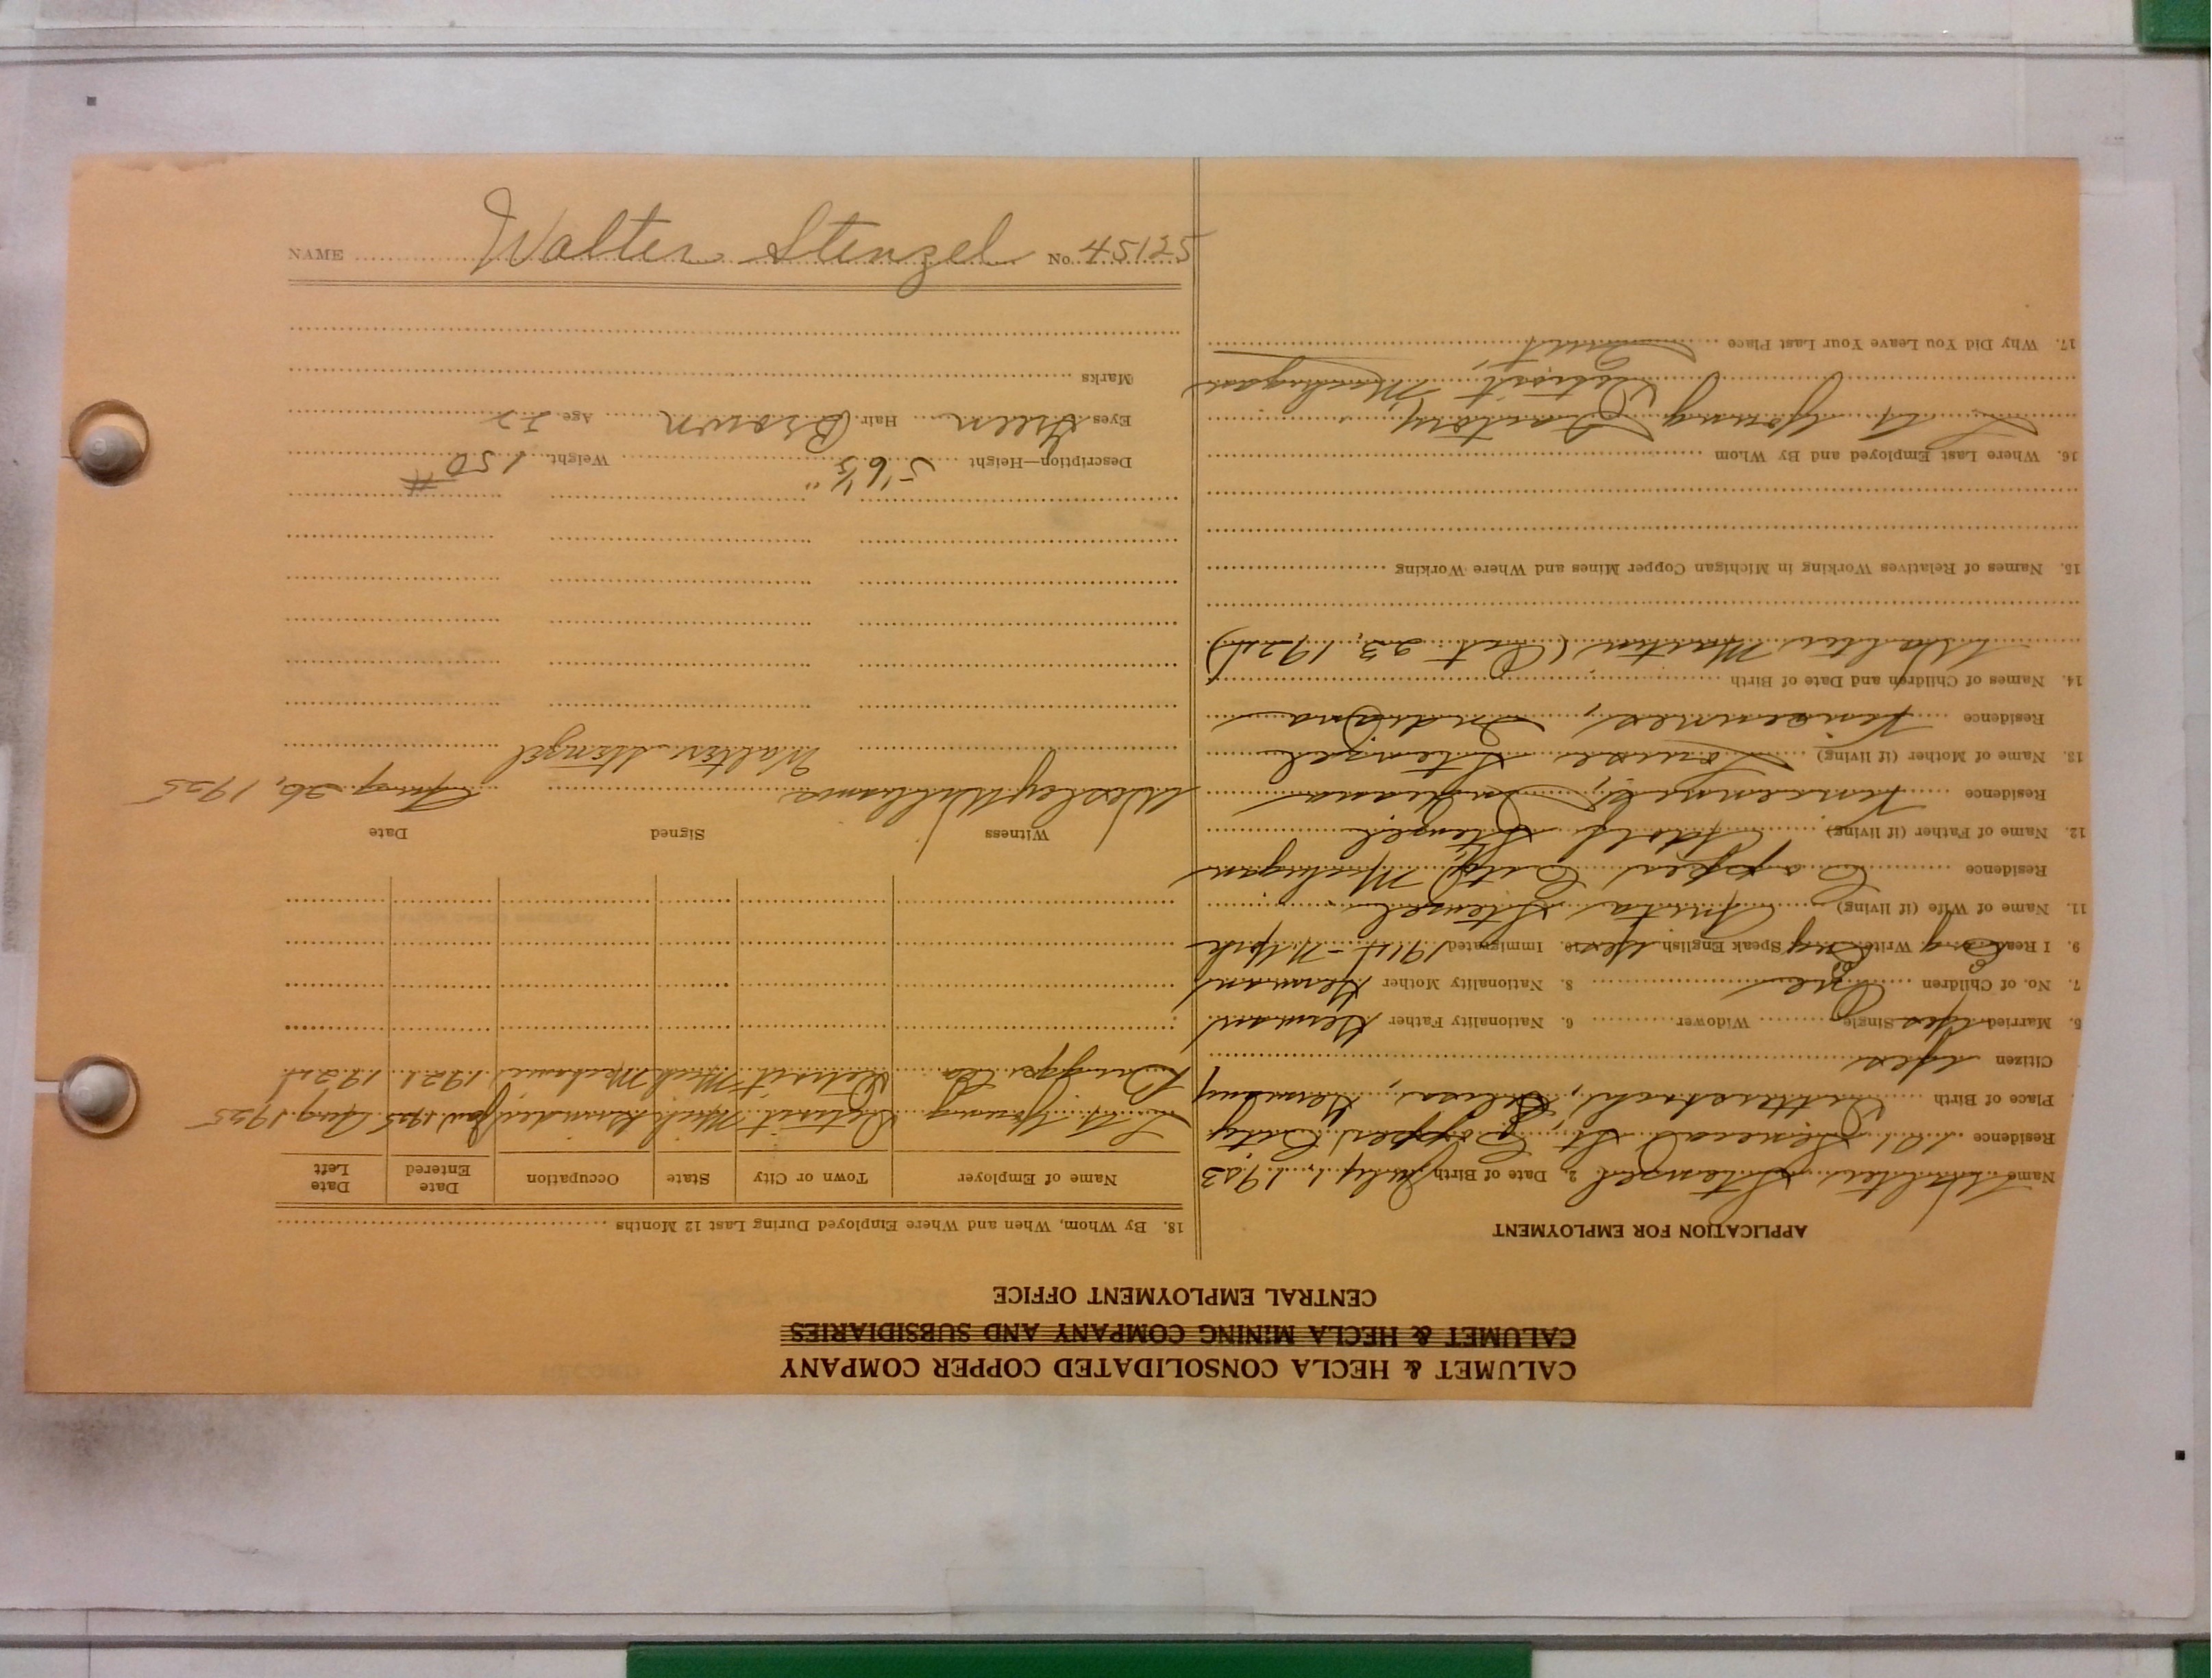 CALUMET & HECLA CONSOLIDATED COPPER COMPANY
CALUMET & HECLA MINING COMPANY AND SUBSIDIARIES
CENTRAL EMPLOYMENT OFFICE
APPLICATION FOR EMPLOYMENT
Name Walter Stenzel 2. Date of Birth July 1, 1903
Residence 101 St. Copper City
Place of Birth Germany
Citizen Yes
5. Married Yes Single Widower 6. Nationality Father German
7. No. of Children One 8. Nationality Mother German
9. I Read Eng Write Eng Speak English Yes 10. Immigrated 1914 - N. York
11. Name of Wife (if living) Anita Stenzel
Residence Copper City Michigan
12. Name of Father (if living) Adolf Stenzel
Residence Vincennes, Indiana
13. Name of Mother (if living) Louise Stenzel
Residence Vincennes, Indiana
14. Names of Children and Date of Birth
Walter Martin (Oct. 23, 1924)
15. Names of Relatives Working in Michigan Copper Mines and Where Working
16. Where Last Employed and By Whom
L. A. Young Factory,
Detroit, Michigan
17. Why Did You Leave Your Last Place Quit
18. By Whom, When and Where Employed During Last 12 Months
Name of Employer Town or City State Occupation Date Entered Date Left
L. A. Young Detroit Mich Grinder Jan. 1925 Aug. 1925
Briggs Co Detroit Mich Mechanic 1921 1924
Witness Signed Date
Wesley Williams Walter Stenzel Aug. 26, 1925
Description—Height 5' 6 1/2" Weight 150 #
Eyes Green Hair Brown Age 22
Marks
NAME Walter Stenzel No. 45125